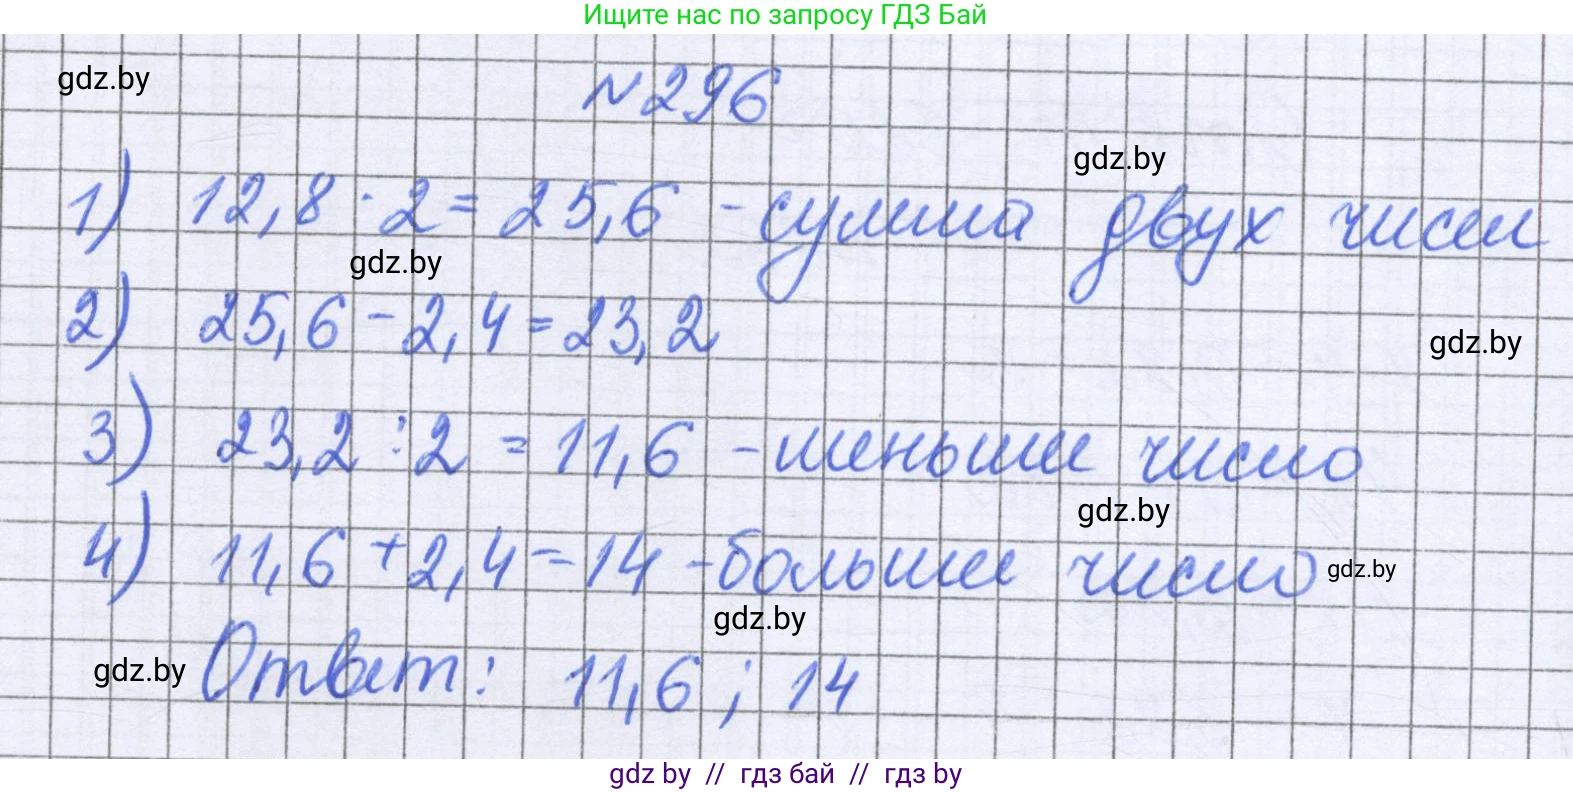 Ищите нас по запросу ГДЗ Бай
gdz.by
№296
gdz.by
1) 12,8 · 2 = 25,6 - сумма двух чисел
gdz.by
2) 25,6 - 2,4 = 23,2
gdz.by
3) 23,2 : 2 = 11,6 - меньшее число
gdz.by
4) 11,6 + 2,4 = 14 - большее число
gdz.by
gdz.by
gdz.by
Ответ: 11,6 ; 14
gdz by // гдз бай // гдз by